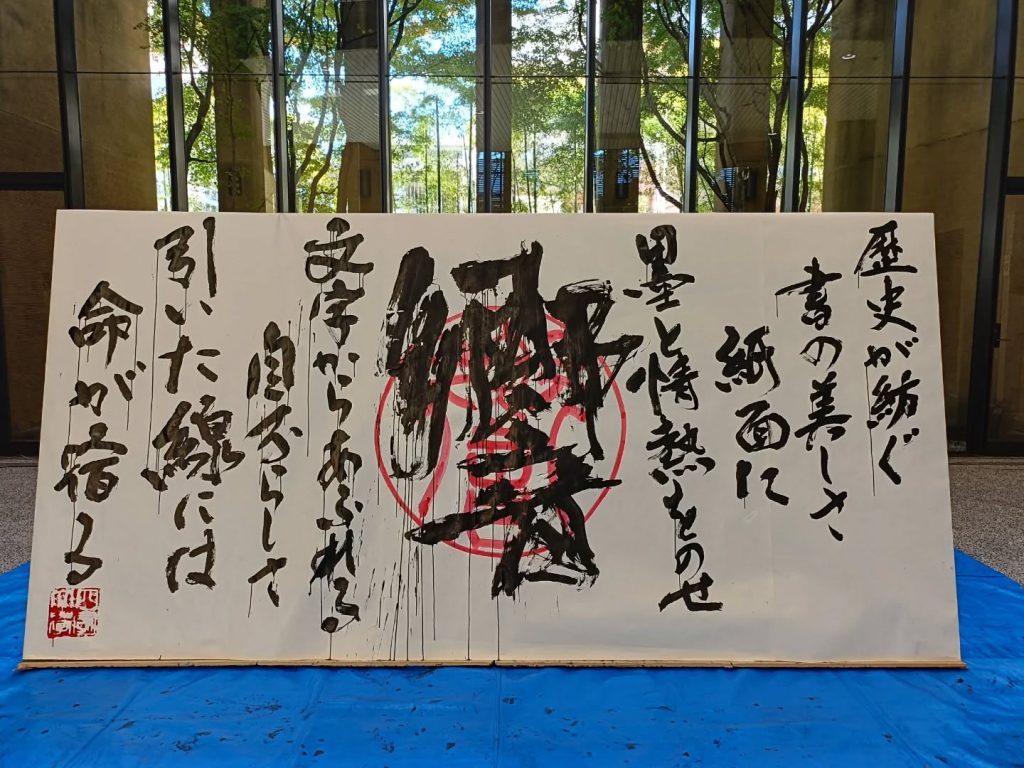 歴史が紡ぐ
書の美しさ
紙面に
墨と情熱をのせ
文字からあふれる
自分らしさ
引いた線には
命が宿る